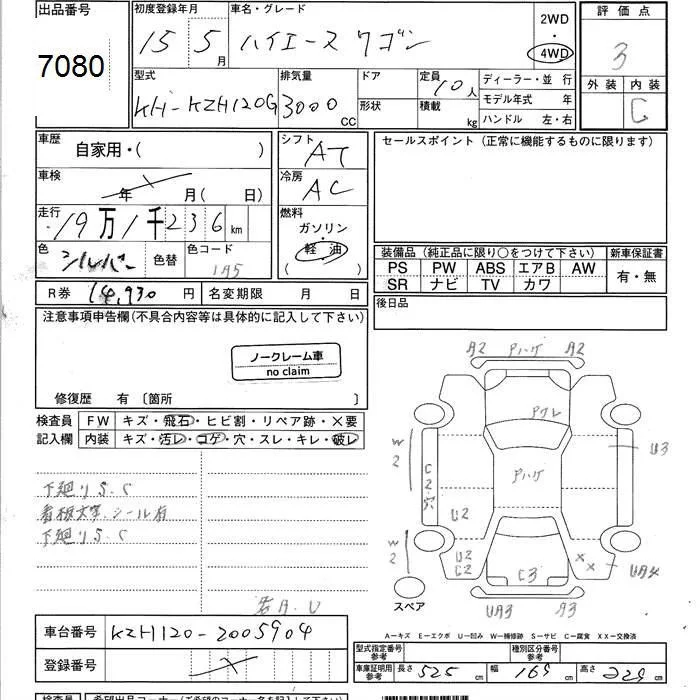 出品番号
7080
初度登録年月
15 5月
車名・グレード
ハイエース ワゴン
2WD
4WD
評価点
3
外装 内装
C
型式
KH-KZH120G
排気量
3000 CC
ドア
形状
定員
10人
積載
kg
ディーラー・並行
モデル年式 年
ハンドル 左・右
車歴
自家用・( )
車検
年 月( 日)
走行
19万1千236 km
色
シルバー
色替
色コード
1A5
シフト
AT
冷房
AC
燃料
ガソリン
軽油
( )
セールスポイント(正常に機能するものに限ります)
装備品(純正品に限り○をつけて下さい)
新車保証書
PS PW ABS エアB AW
SR ナビ TV カワ
有・無
後日品
R券 14,930円
名変期限 月 日
注意事項申告欄(不具合内容等は具体的に記入して下さい)
ノークレーム車
no claim
修復歴 有 〔箇所 〕
検査員
記入欄
FW キズ・飛石・ヒビ割・リペア跡・×要
内装 キズ・汚レ・コゲ・穴・スレ・キレ・破レ
下廻りS.C
看板文字.シール有
下廻りS.C
A2 Pハゲ A2
Pクレ
W2
U3
C2穴
Pハゲ
U2
W2
U2
C2
C3
××
UA4
スペア
UA3
A3
A―キズ E―エクボ U―凹み W―補修跡 S―サビ C―腐食 XX―交換済
車台番号 KZH120-2005904
登録番号
型式指定番号
参考
種別区分番号
参考
車庫証明用
参考
長さ 525 cm
幅 169 cm
高さ 229 cm
検査員
希望出品コーナー(ご希望のコーナー名を記入